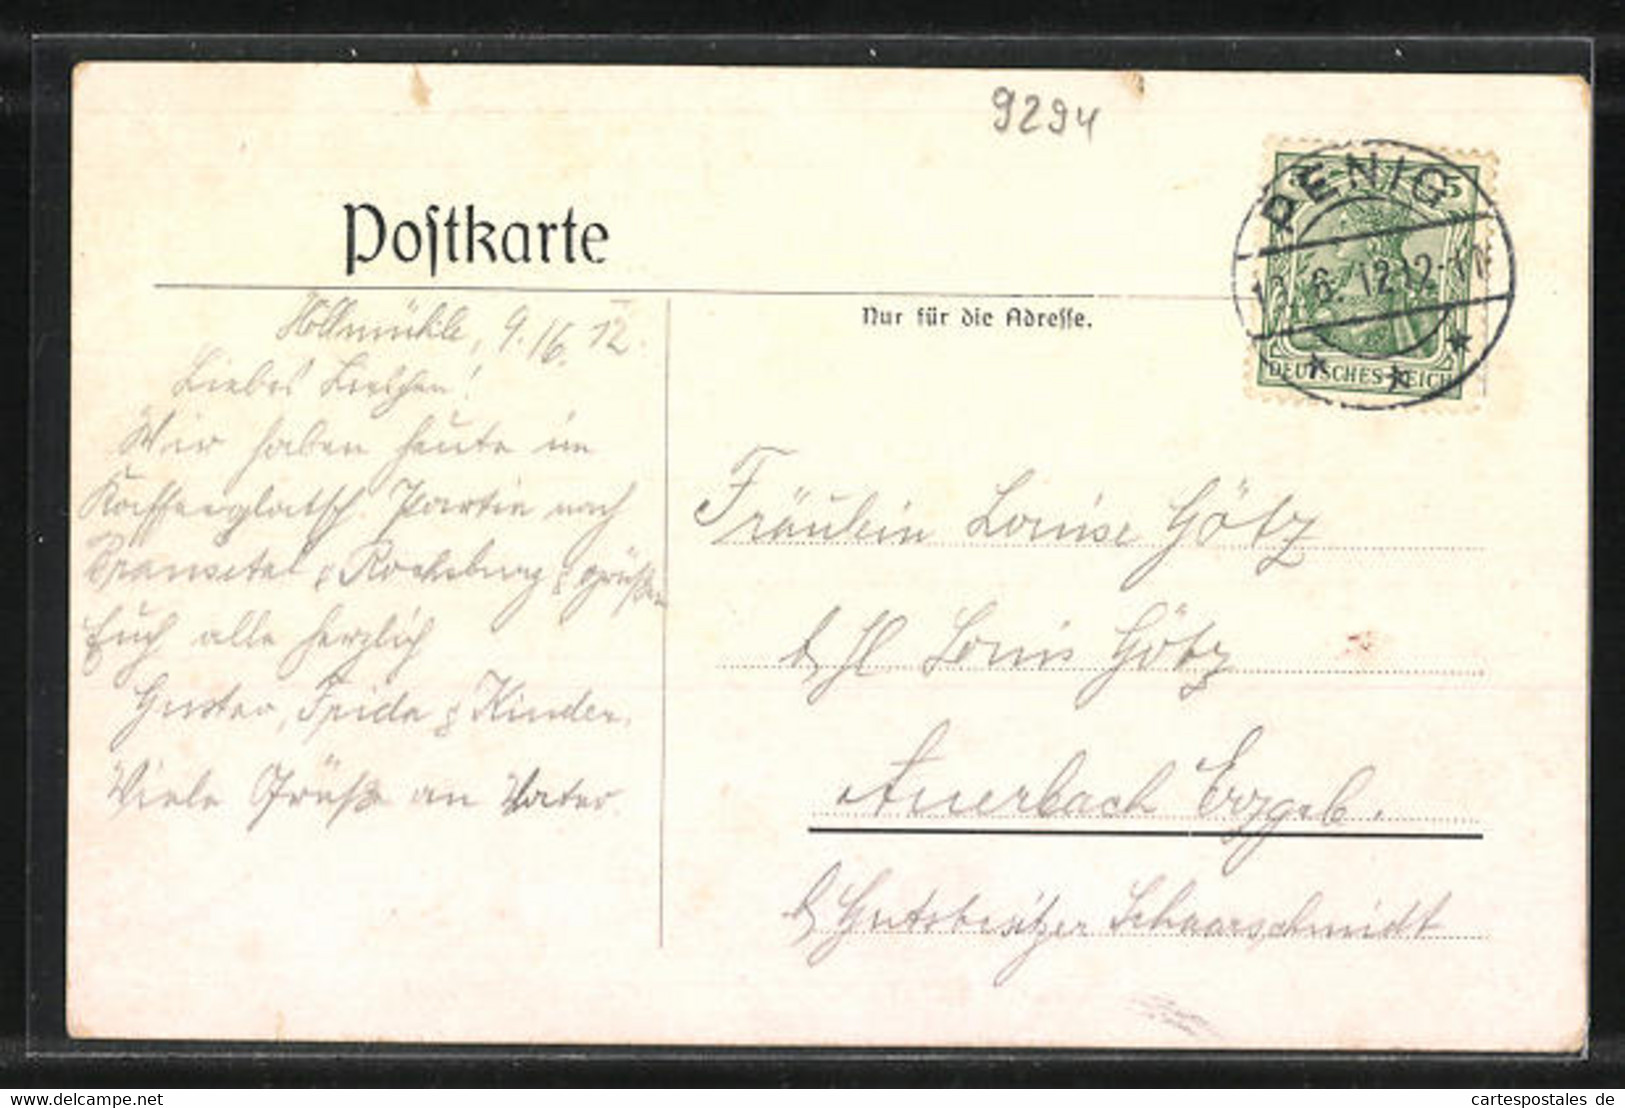 9294
Postkarte
PENIG
6. 12 12-1
5
DEUTSCHES REICH
Nur für die Adresse.
9./6. 12.
Liebes Lieschen!
Wir haben heute im
Kaffeeglatsch Partie nach
Rochsburg & grüßen
Euch alle herzlich
Gustav, Frida & Kinder.
Viele Grüße an Vater.
Fräulein Louise Götz
b/ H. Louis Götz
Auerbach Erzgeb.
b/ Gutsbesitzer Schaarschmidt
cartespostales de
www.delcampe.net